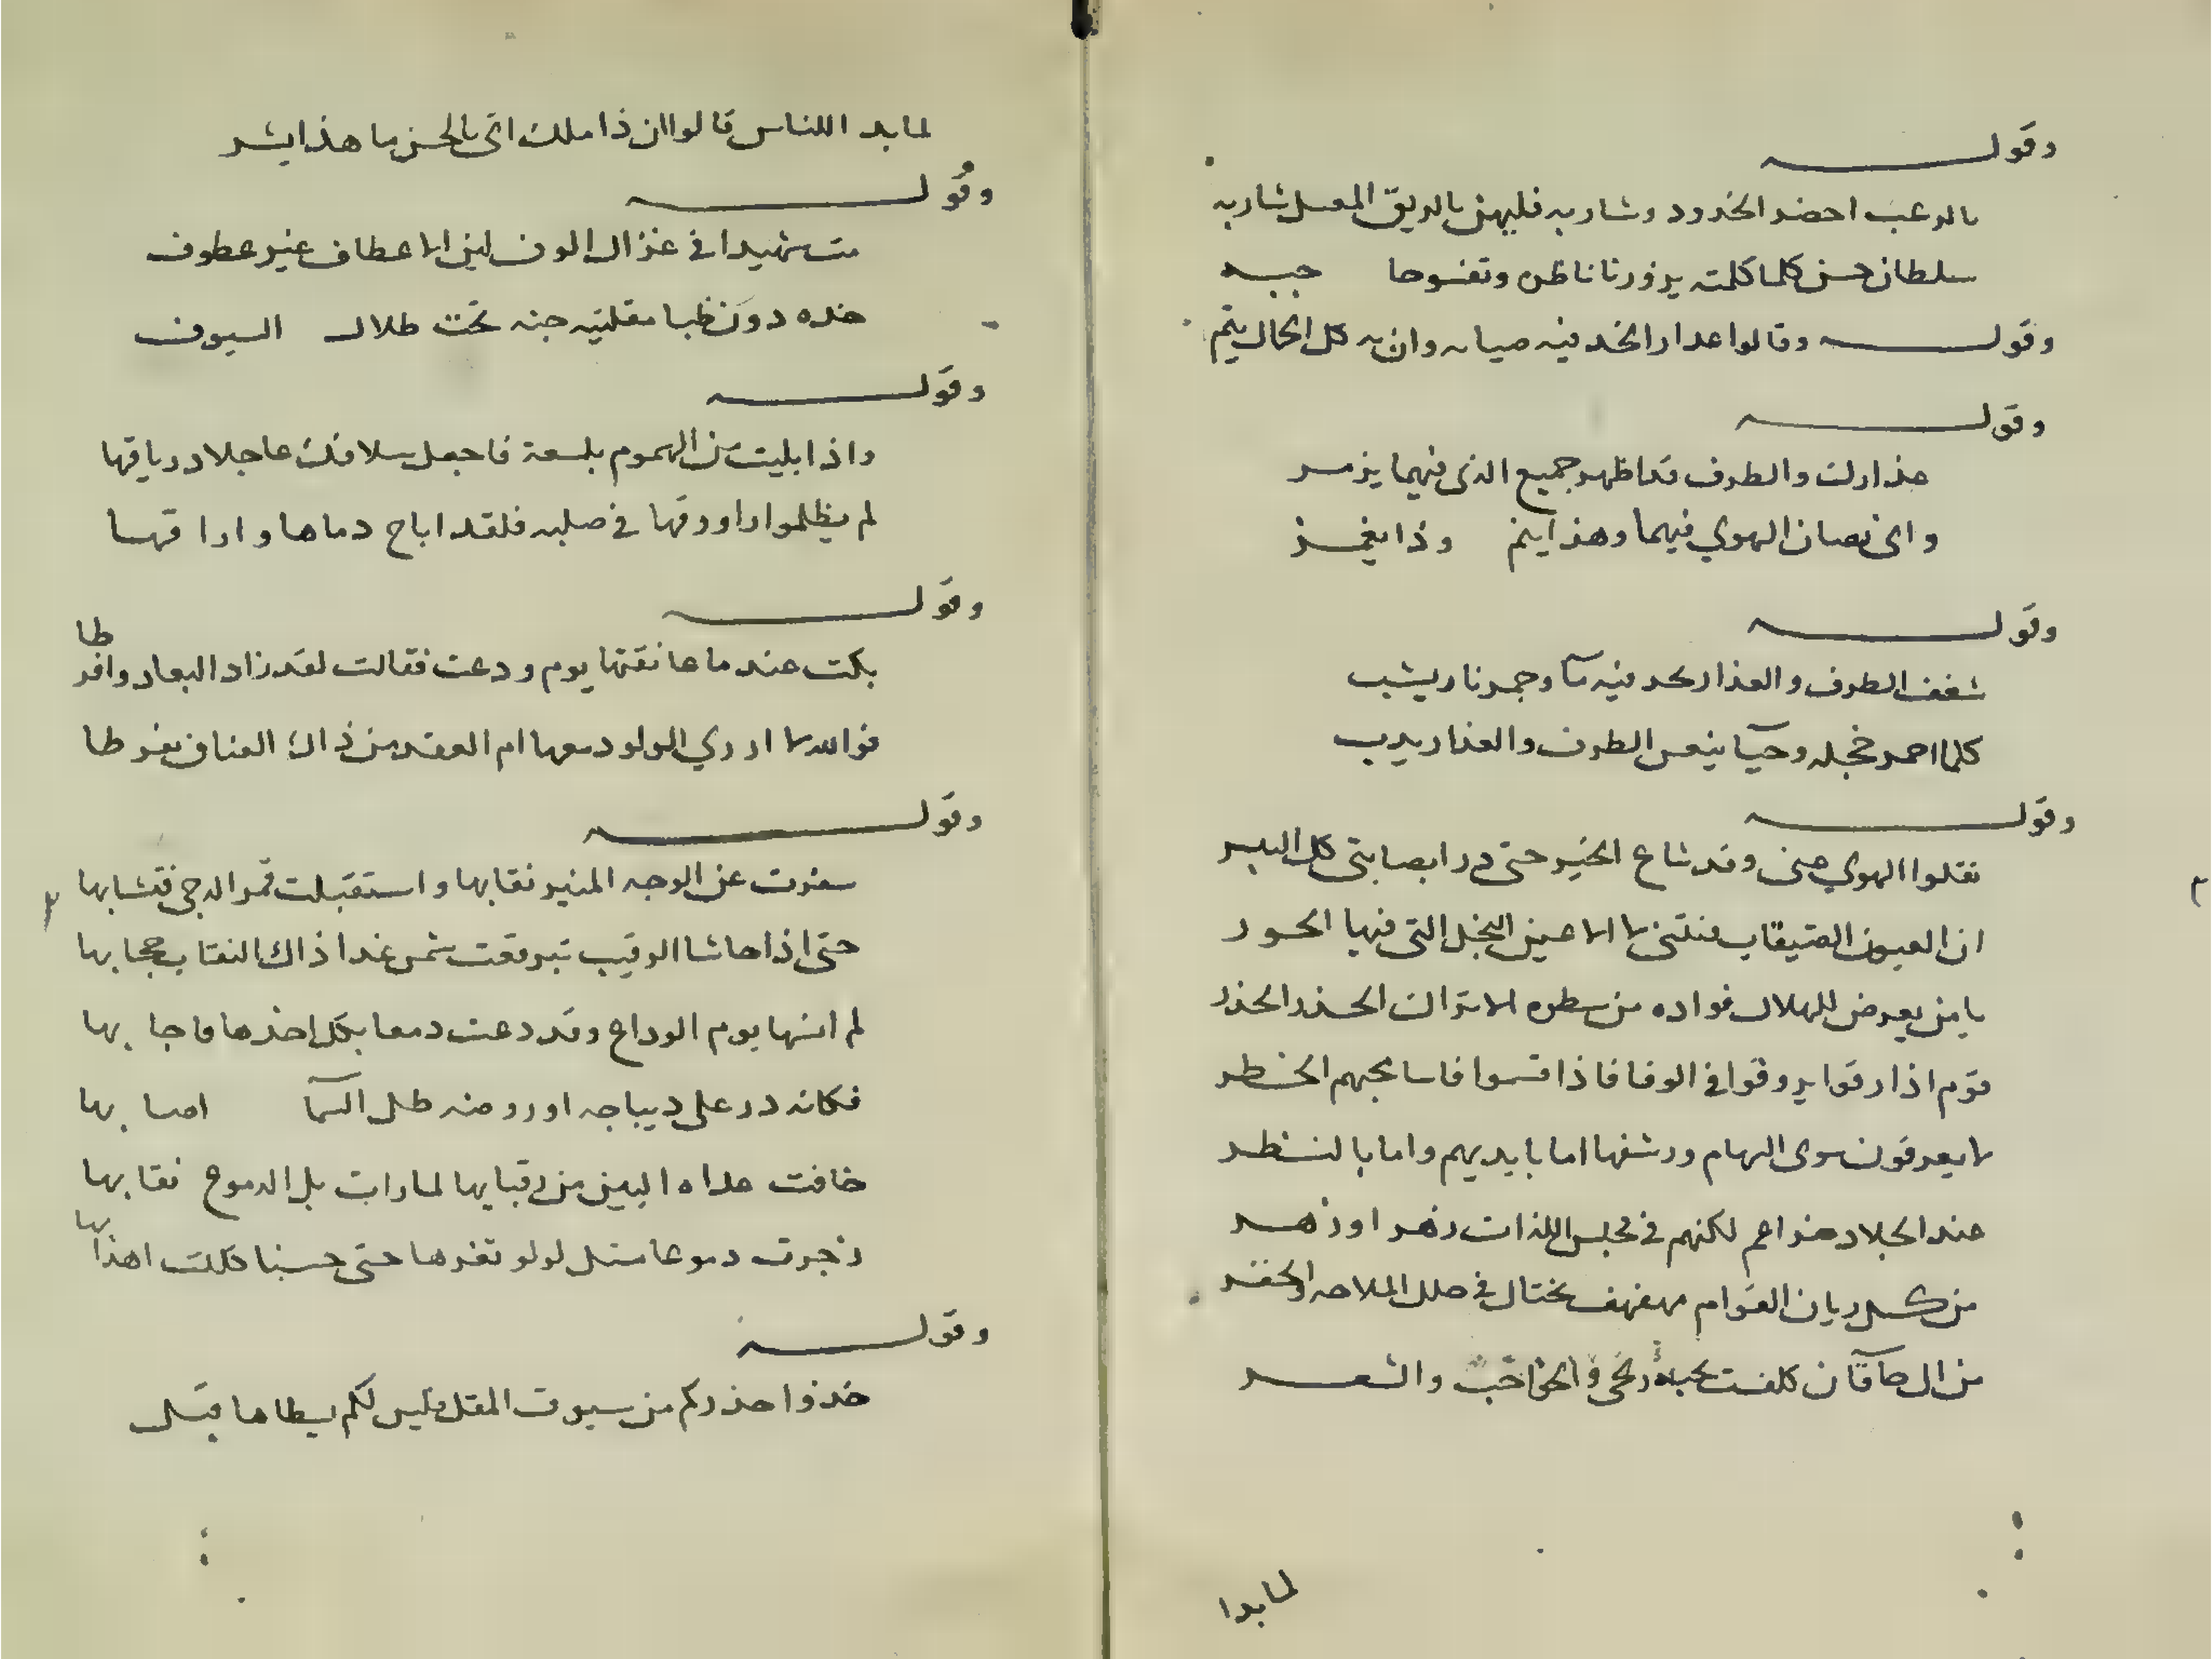 وقوله
بالرعب اخضر الخدود وشاربه فليهن بالريق المعسل شاربه
سلطان حسن كلما كلمته يزور نا ناظره وتغسوحا جبه
وقوله وقالوا عدار الخد فيه صيانه وان به كل الجمال يتم
وقوله
عذارك والطرف قد اظهر جميع الذي فيهما يزمر
واني تصان الهوي فيهما وهذا ينم وذا يغمز
وقوله
شغف الطرف والعذار بخد فيه مآ وجمر نار يشب
كلما احمر خجله وحيآ ينعس الطرف والعذار يدب
وقوله
نقلوا الهوي عني وقد شاع الخبر حتى درا بصبابتي كل البشر
ان العيون الضيقات فتنني لا الاعين النجل التي فيها الحور
يا من يعرض للهلال فواده من سطوه الاتراك الحذر الحذر
قوم اذا رقوا يروقوا في الوفا فاذا قسوا فاسا محبهم الخطر
لا يعرفون سوى السهام ورشقها اما بايديهم واما بالنظر
عند الجلاد ضراغم لكنهم في مجلس اللذات زهر او زهر
من كل ريان القوام مهفهف يختال في حلل الملاحه والخفر
من ال خاقان كلفت بحبه والشعر
لما بدا
لما بدا للناس قالوا ان ذا ملك اتى بالحسن ما هذا بشر
وقوله
مت شهيدا في غزال الوف لين الاعطاف غير عطوف
خده دون ظبا مقلتيه جنه تحت ظلال السيوف
وقوله
واذا بليت من الهموم بلسعة فاجعل سلافك عاجلا درياقها
لم يظلموا راووقها في صلبه فلقد اباح دماها واراقها
وقوله
بكت عندما عانقتها يوم ودعت فقالت لقد زاد البعاد وافرطا
فوالله لا ادري الولو دمعها ام العقد من ذاك العناق تفرطا
وقوله
سفرت عن الوجه المنير نقابها واستقبلت قمر الدجى فتشابها
حتى اذا حاشا الرقيب تبرقعت شمس غدا ذاك النقاب حجابها
لم انسها يوم الوداع وقد دعت دمعا بكل اخذها فاجابها
فكانه در على ديباجه او روضه طل السمآ اصابها
خافت عداه البين من رقبايها لما رات بل الدموع نقابها
زجرت دموعا مثل لولو ثغرها حتى حسبنا كللت اهدابها
وقوله
خذوا حذركم من سيوف المقل فليس لكم بسطاها قبل